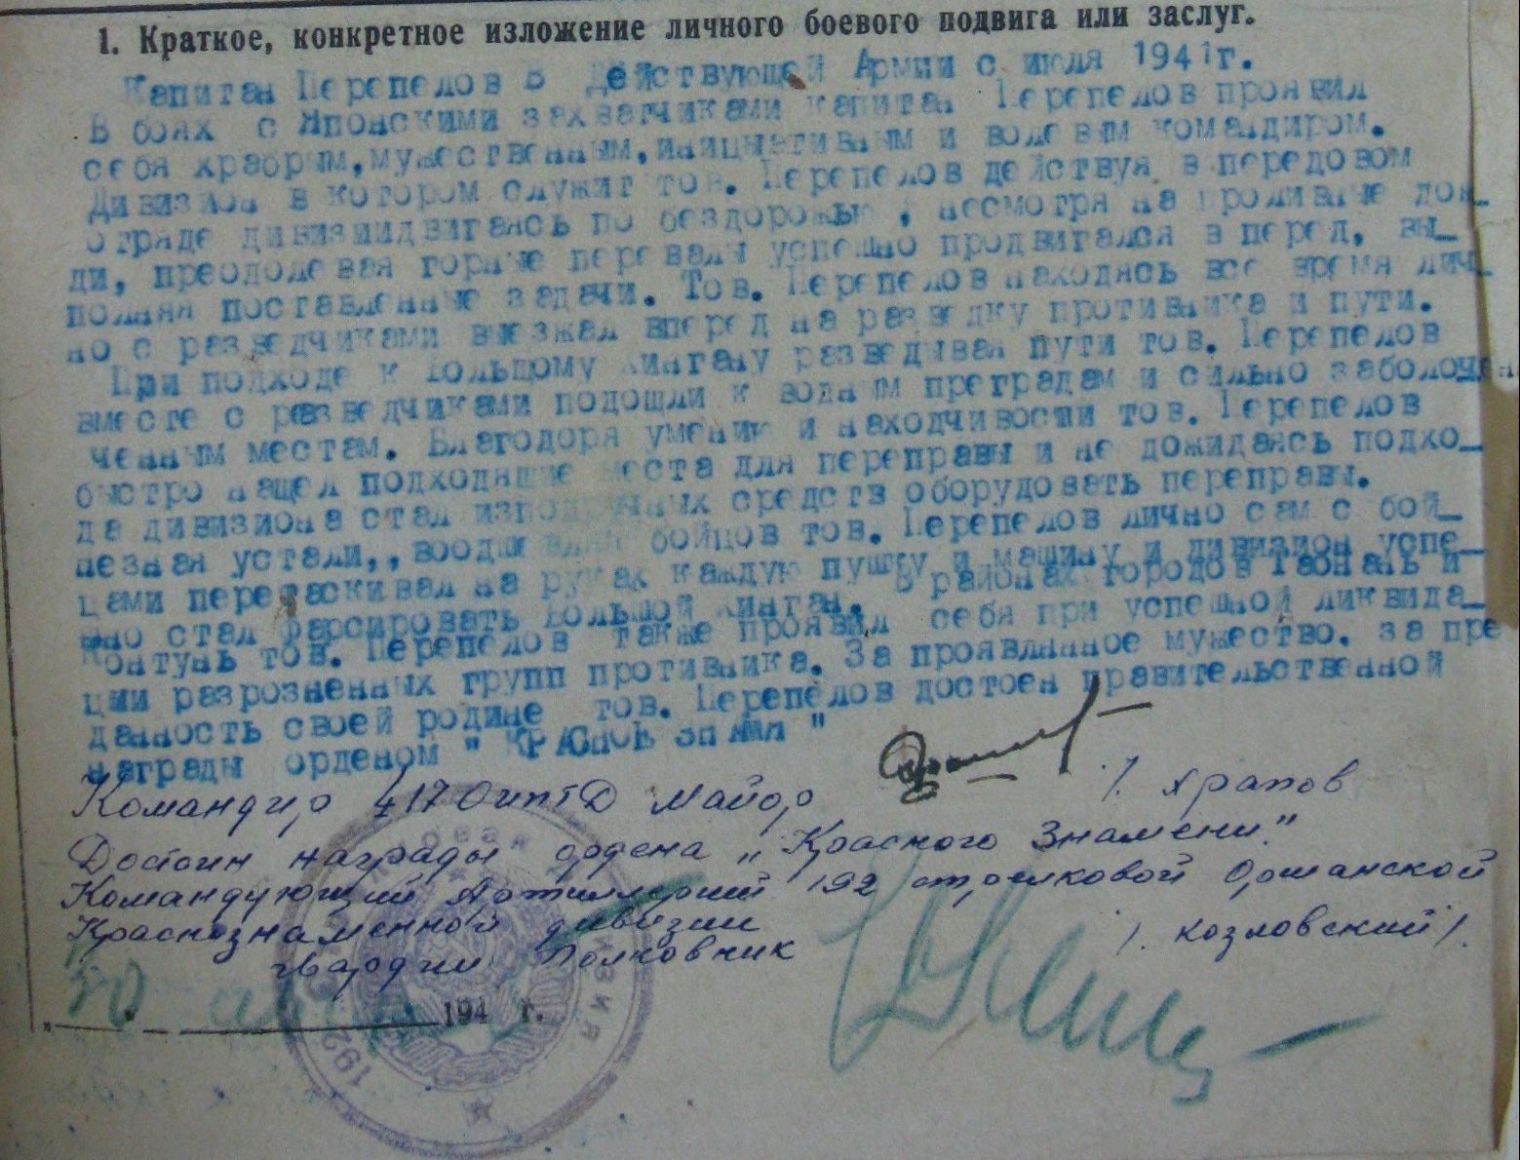 1. Краткое, конкретное изложение личного боевого подвига или заслуг.
Капитан Перепелов в Действующей Армии с июля 1941г.
В боях с Японскими захватчиками капитан Перепелов проявил
себя храбрым, мужественным, инициативным и волевым командиром.
Дивизион в котором служит тов. Перепелов действуя в передовом
отряде дивизиидвигаясь по бездорожью, несмотря на проливные дож_
ди, преодолевая горные перевалы успешно продвигался в перед, вы_
полняя поставленные задачи. Тов. Перепелов находясь все время лич_
но с разведчиками выезжал вперед на разведку противника и пути.
При подходе к Большому Хингану разведывая пути тов. Перепелов
вместе с разведчиками подошли к водным преградам и сильно заболочен
ченным местам. Благодоря умению и находчивости тов. Перепелов
быстро нашел подходящие места для переправы и не дожидаясь подхо_
да дивизиона стал изподручных средств оборудовать переправы.
незная устали,, воодшевляя бойцов тов. Перепелов лично сам с бой_
цами перетаскивал на руках каждую пушку и машину и дивизион успе_
шно стал фарсировать Большой Хинган. В районах городов Таонань и
Контунь тов. Перепелов также проявил себя при успешной ликвида_
ции разрозненных групп противника. За проявланное мужество. за пре
данность своей родине тов. Перепелов достоен правительственной
награды орденом " КРАСНОЕ ЗНАМЯ "
Командир 417 ОиптД Майор /. Храпов
Достоин награды ордена „Красного Знамени."
Командующий Артиллерий 192 стрелковой Оршанской
Краснознаменной дивизии
гвардии Полковник /. Козловский /.
"30" август 194 г.